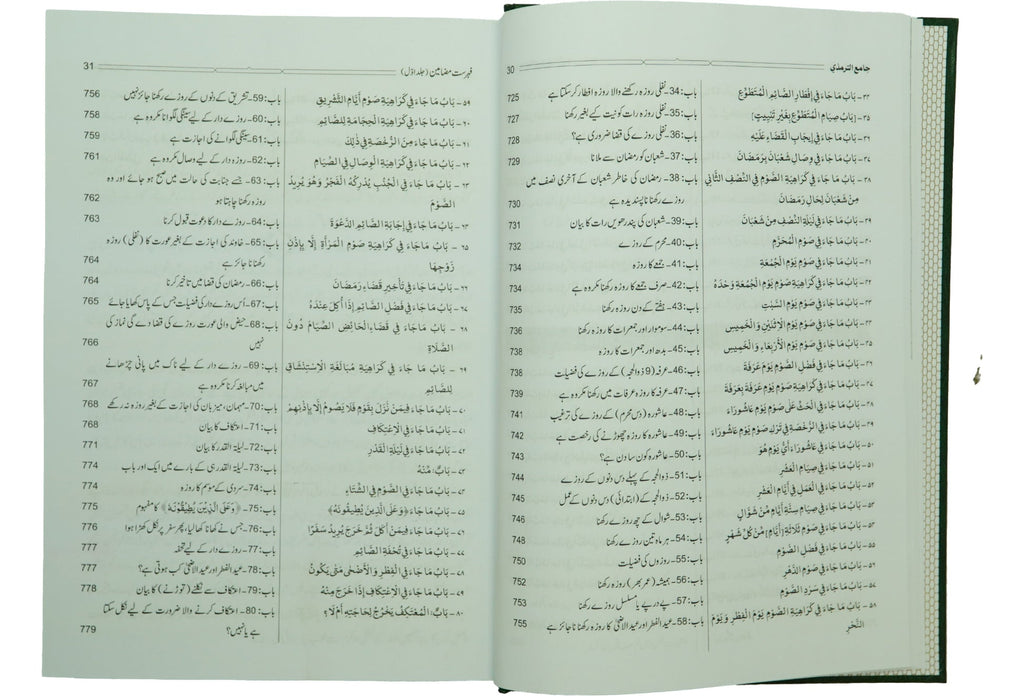 جامع الترمذی 30
۳۴ - بَابُ مَا جَاءَ فِي إِفْطَارِ الصَّائِمِ الْمُتَطَوِّعِ باب: 34- نفلی روزہ رکھنے والا روزہ افطار کر سکتا ہے 725
۳۵ - [بَابُ صِيَامِ الْمُتَطَوِّعِ بِغَيْرِ تَبْيِيتٍ] باب: 35- نفلی روزے رات کو نیت کیے بغیر رکھنا 727
۳۶ - بَابُ مَا جَاءَ فِي إِيجَابِ الْقَضَاءِ عَلَيْهِ باب: 36- نفلی روزے کی قضا ضروری ہے؟ 728
۳۷ - بَابُ مَا جَاءَ فِي وِصَالِ شَعْبَانَ بِرَمَضَانَ باب: 37- شعبان کو رمضان سے ملانا 729
۳۸ - بَابُ مَا جَاءَ فِي كَرَاهِيَةِ الصَّوْمِ فِي النِّصْفِ الثَّانِي باب: 38- رمضان کی خاطر شعبان کے آخری نصف میں
مِنْ شَعْبَانَ لِحَالِ رَمَضَانَ روزے رکھنا ناپسندیدہ ہے 730
۳۹ - بَابُ مَا جَاءَ فِي لَيْلَةِ النِّصْفِ مِنْ شَعْبَانَ باب: 39- شعبان کی پندرھویں رات کا بیان 731
۴۰ - بَابُ مَا جَاءَ فِي صَوْمِ الْمُحَرَّمِ باب: 40- محرم کے روزے 732
۴۱ - بَابُ مَا جَاءَ فِي صَوْمِ يَوْمِ الْجُمُعَةِ باب: 41- جمعے کا روزہ 734
۴۲ - بَابُ مَا جَاءَ فِي كَرَاهِيَةِ صَوْمِ يَوْمِ الْجُمُعَةِ وَحْدَهُ باب: 42- صرف جمعے کا روزہ رکھنا مکروہ ہے 734
۴۳ - بَابُ مَا جَاءَ فِي صَوْمِ يَوْمِ السَّبْتِ باب: 43- ہفتے کے دن روزہ رکھنا 735
۴۴ - بَابُ مَا جَاءَ فِي صَوْمِ يَوْمِ الِاثْنَيْنِ وَالْخَمِيسِ باب: 44- سوموار اور جمعرات کا روزہ رکھنا 736
۴۵ - بَابُ مَا جَاءَ فِي صَوْمِ يَوْمِ الْأَرْبِعَاءِ وَالْخَمِيسِ باب: 45- بدھ اور جمعرات کا روزہ 738
۴۶ - بَابُ مَا جَاءَ فِي فَضْلِ الصَّوْمِ يَوْمَ عَرَفَةَ باب: 46- عرفہ (9 ذوالحجہ) کے روزے کی فضیلت 738
۴۷ - بَابُ مَا جَاءَ فِي كَرَاهِيَةِ صَوْمِ يَوْمِ عَرَفَةَ بِعَرَفَةَ باب: 47- عرفہ کا روزہ عرفات میں رکھنا مکروہ ہے 739
۴۸ - بَابُ مَا جَاءَ فِي الْحَثِّ عَلَى صَوْمِ يَوْمِ عَاشُورَاءَ باب: 48- عاشورہ (دس محرم) کے روزے کی ترغیب 741
۴۹ - بَابُ مَا جَاءَ فِي الرُّخْصَةِ فِي تَرْكِ صَوْمِ يَوْمِ عَاشُورَاءَ باب: 49- عاشورہ کا روزہ چھوڑنے کی رخصت ہے 742
۵۰ - بَابُ مَا جَاءَ فِي عَاشُورَاءَ أَيُّ يَوْمٍ هُوَ باب: 50- عاشورہ کون سا دن ہے؟ 742
۵۱ - بَابُ مَا جَاءَ فِي صِيَامِ الْعَشْرِ باب: 51- ذوالحجہ کے پہلے دس دنوں کے روزے 744
۵۲ - بَابُ مَا جَاءَ فِي الْعَمَلِ فِي أَيَّامِ الْعَشْرِ باب: 52- ذوالحجہ کے (ابتدائی) دس دنوں کے عمل 745
۵۳ - بَابُ مَا جَاءَ فِي صِيَامِ سِتَّةِ أَيَّامٍ مِنْ شَوَّالٍ باب: 53- شوال کے چھ روزے رکھنا 746
۵۴ - بَابُ مَا جَاءَ فِي صَوْمِ ثَلَاثَةِ [أَيَّامٍ] مِنْ كُلِّ شَهْرٍ باب: 54- ہر ماہ تین روزے رکھنا 748
۵۵ - بَابُ مَا جَاءَ فِي فَضْلِ الصَّوْمِ باب: 55- روزوں کی فضیلت 750
۵۶ - بَابُ مَا جَاءَ فِي صَوْمِ الدَّهْرِ باب: 56- ہمیشہ (عمر بھر) روزہ رکھنا 752
۵۷ - بَابُ مَا جَاءَ فِي سَرْدِ الصَّوْمِ باب: 57- پے در پے یا مسلسل روزے رکھنا 753
۵۸ - بَابُ مَا جَاءَ فِي كَرَاهِيَةِ الصَّوْمِ يَوْمَ الْفِطْرِ وَيَوْمَ باب: 58- عید الفطر اور عید الاضحیٰ کا روزہ رکھنا ناجائز ہے 755
النَّحْرِ
فہرست مضامین (جلد اول) 31
۵۹ - بَابُ مَا جَاءَ فِي كَرَاهِيَةِ صَوْمِ أَيَّامِ التَّشْرِيقِ باب: 59- تشریق کے دنوں کے روزے رکھنا جائز نہیں 756
۶۰ - بَابُ مَا جَاءَ فِي كَرَاهِيَةِ الْحِجَامَةِ لِلصَّائِمِ باب: 60- روزے دار کے لیے سینگی لگوانا مکروہ ہے 758
۶۱ - بَابُ مَا جَاءَ مِنَ الرُّخْصَةِ فِي ذٰلِكَ باب: 61- سینگی لگوانے کی اجازت ہے 759
۶۲ - بَابُ مَا جَاءَ فِي كَرَاهِيَةِ الْوِصَالِ فِي الصِّيَامِ باب: 62- روزہ دار کے لیے وصال مکروہ ہے 761
۶۳ - بَابُ مَا جَاءَ فِي الْجُنُبِ يُدْرِكُهُ الْفَجْرُ وَهُوَ يُرِيدُ باب: 63- جسے جنابت کی حالت میں صبح ہو جائے اور وہ
الصَّوْمَ روزہ رکھنا چاہتا ہو 762
۶۴ - بَابُ مَا جَاءَ فِي إِجَابَةِ الصَّائِمِ الدَّعْوَةَ باب: 64- روزے دار کا دعوت قبول کرنا 763
۶۵ - بَابُ مَا جَاءَ فِي كَرَاهِيَةِ صَوْمِ الْمَرْأَةِ إِلَّا بِإِذْنِ باب: 65- خاوند کی اجازت کے بغیر عورت کا (نفلی) روزہ
زَوْجِهَا رکھنا ناجائز ہے 764
۶۶ - بَابُ مَا جَاءَ فِي تَأْخِيرِ قَضَاءِ رَمَضَانَ باب: 66- رمضان کی قضا میں تاخیر کرنا 764
۶۷ - بَابُ مَا جَاءَ فِي فَضْلِ الصَّائِمِ إِذَا أُكِلَ عِنْدَهُ باب: 67- اُس روزے دار کی فضیلت جس کے پاس کھایا جائے 765
۶۸ - بَابُ مَا جَاءَ فِي قَضَاءِ الْحَائِضِ الصِّيَامَ دُونَ باب: 68- حیض والی عورت روزے کی قضا دے گی نماز کی
الصَّلَاةِ نہیں 766
۶۹ - بَابُ مَا جَاءَ فِي كَرَاهِيَةِ مُبَالَغَةِ الِاسْتِنْشَاقِ باب: 69- روزے دار کے لیے ناک میں پانی چڑھانے
لِلصَّائِمِ میں مبالغہ کرنا مکروہ ہے 767
۷۰ - بَابُ مَا جَاءَ فِيمَنْ نَزَلَ بِقَوْمٍ فَلَا يَصُومُ إِلَّا بِإِذْنِهِمْ باب: 70- مہمان، میزبان کی اجازت کے بغیر روزہ نہ رکھے 768
۷۱ - بَابُ مَا جَاءَ فِي الِاعْتِكَافِ باب: 71- اعتکاف کا بیان 768
۷۲ - بَابُ مَا جَاءَ فِي لَيْلَةِ الْقَدْرِ باب: 72- لیلۃ القدر کا بیان 771
۷۳ - بَابٌ: مِنْهُ باب: 73- لیلۃ القدر ہی کے بارے میں ایک اور باب 774
۷۴ - بَابُ مَا جَاءَ فِي الصَّوْمِ فِي الشِّتَاءِ باب: 74- سردی کے موسم کا روزہ 774
۷۵ - بَابُ مَا جَاءَ ﴿وَعَلَى الَّذِينَ يُطِيقُونَهُ﴾ باب: 75- ﴿وَعَلَى الَّذِينَ يُطِيقُونَهُ﴾ کا مفہوم 775
۷۶ - بَابُ مَا جَاءَ فِيمَنْ أَكَلَ ثُمَّ خَرَجَ يُرِيدُ سَفَرًا باب: 76- جس نے کھانا کھا لیا، پھر سفر پر نکل کھڑا ہوا 776
۷۷ - بَابُ مَا جَاءَ فِي تُحْفَةِ الصَّائِمِ باب: 77- روزے دار کے لیے تحفہ 777
۷۸ - بَابُ مَا جَاءَ فِي الْفِطْرِ وَالْأَضْحٰى مَتٰى يَكُونُ باب: 78- عید الفطر اور عید الاضحیٰ کب ہوتی ہے؟ 777
۷۹ - بَابُ مَا جَاءَ فِي الِاعْتِكَافِ إِذَا خَرَجَ مِنْهُ باب: 79- اعتکاف سے نکلنے (توڑنے) کا بیان 778
۸۰ - بَابٌ: الْمُعْتَكِفُ يَخْرُجُ لِحَاجَتِهِ أَمْ لَا؟ باب: 80- اعتکاف کرنے والا ضرورت کے لیے نکل سکتا
ہے یا نہیں؟ 779